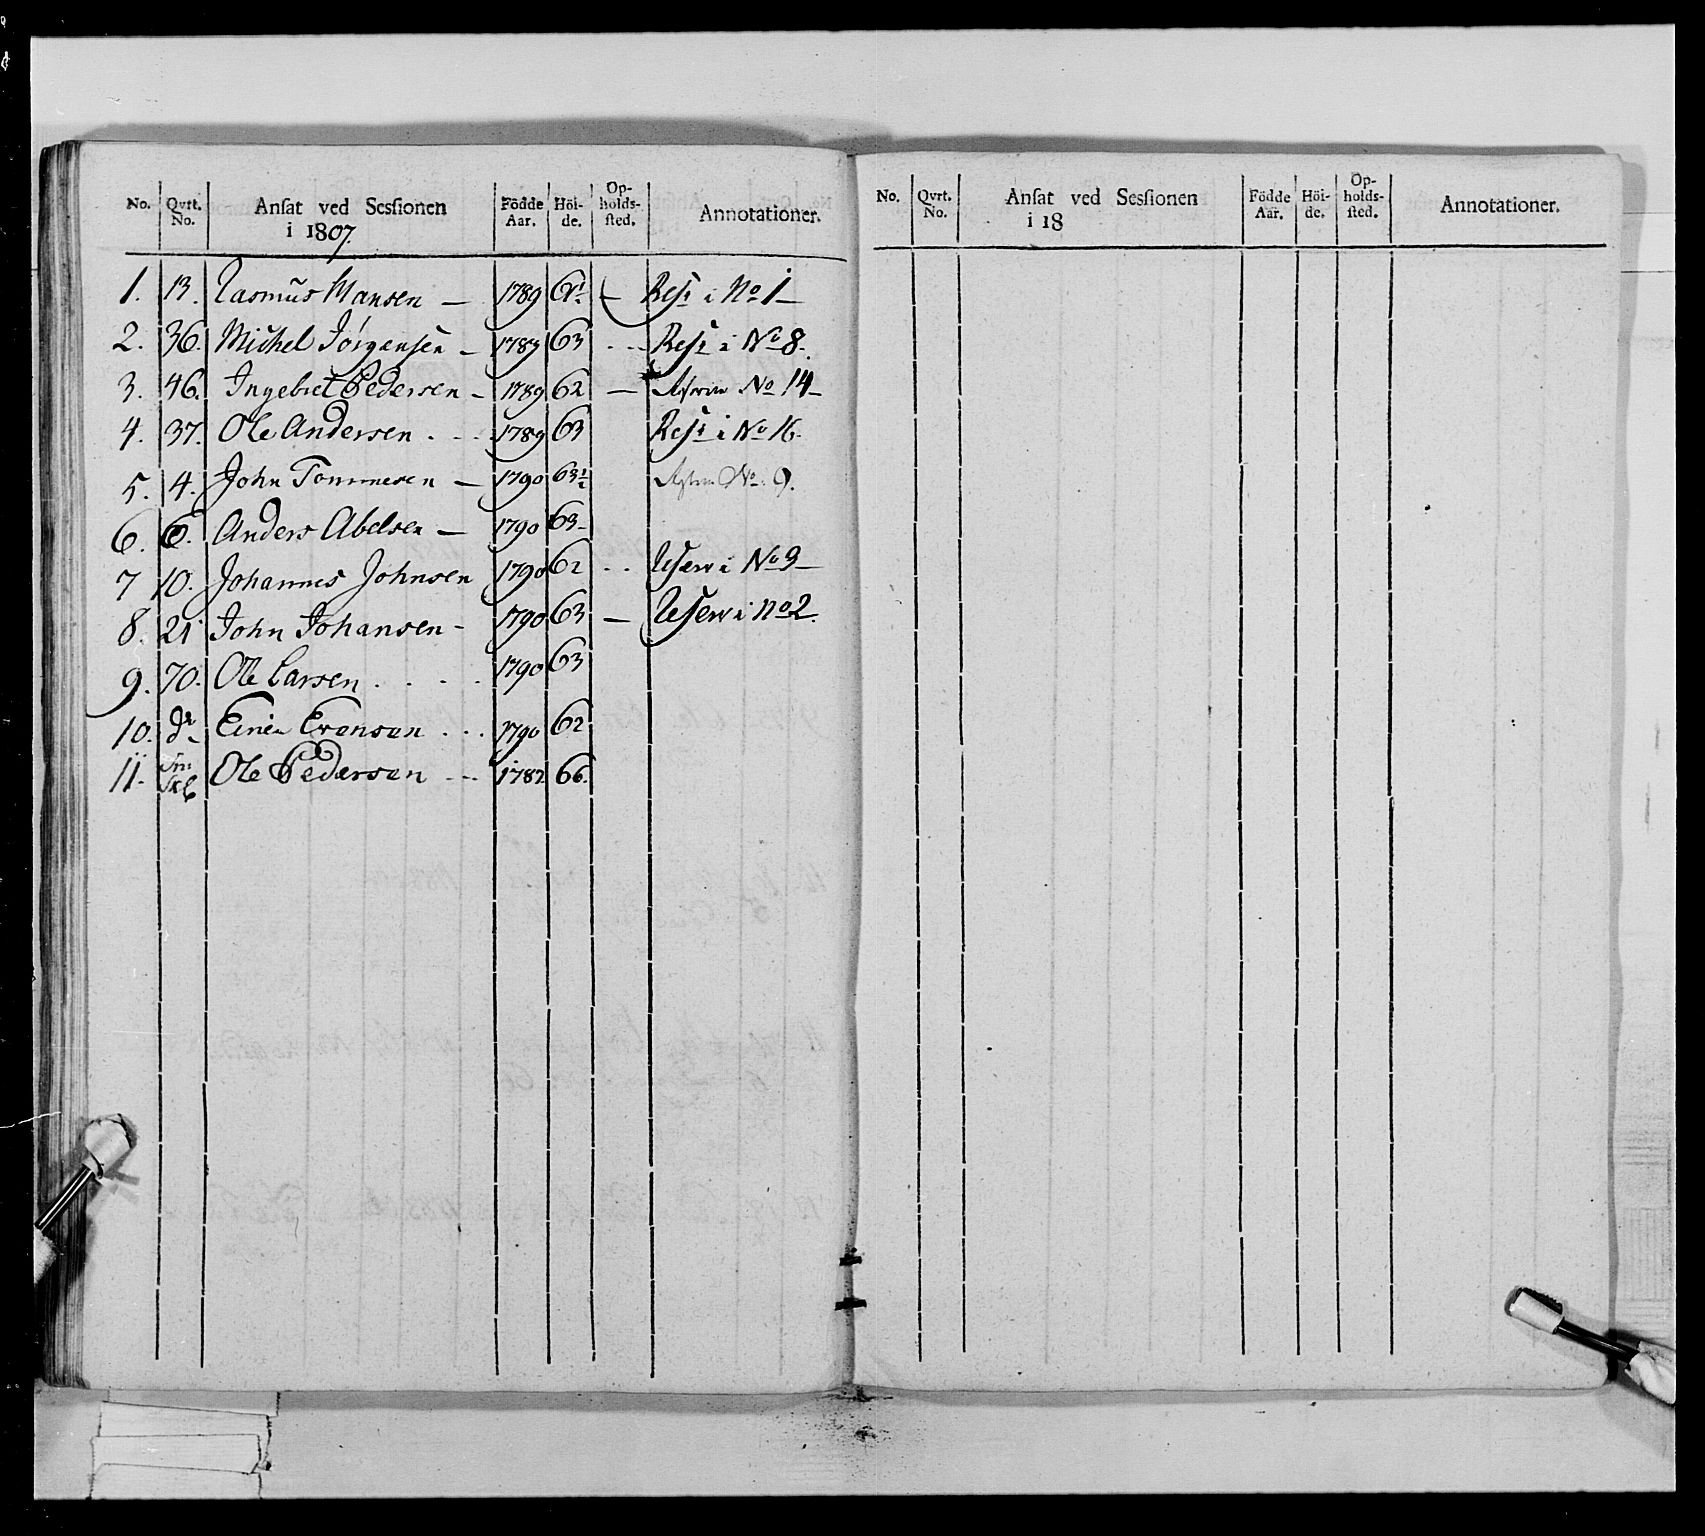 No. Qvrt. No. Ansat ved Sessionen i 1807. Födde Aar. Höi- de. Op- holds- sted. Annotationer.
1. 13. Rasmus Hansen — 1789 — Rest i No 1 —
2. 36. Michel Jörgensen — 1789 63 . . . Rest i No 8.
3. 46. Ingebret Pedersen — 1789 62 — No 14 —
4. 37. Ole Andersen . . . 1789 63 Rest i No 16.
5. 4. John Tommesen — 1790 63½ No. 9.
6. 6. Anders Abelsen — 1790 63 —
7 10. Johannes Johnsen 1790 62 . . Reserv i No 9 —
8. 21 John Johansen — 1790 63 — Reserv i No 2.
9. 70. Ole Larsen . . . . 1790 63
10. do Einer Evensen . . . 1790 62
11. Ole Pedersen . . . 1782 66.
No. Qvrt. No. Ansat ved Sessionen i 18 Födde Aar. Höi- de. Op- holds- sted. Annotationer.